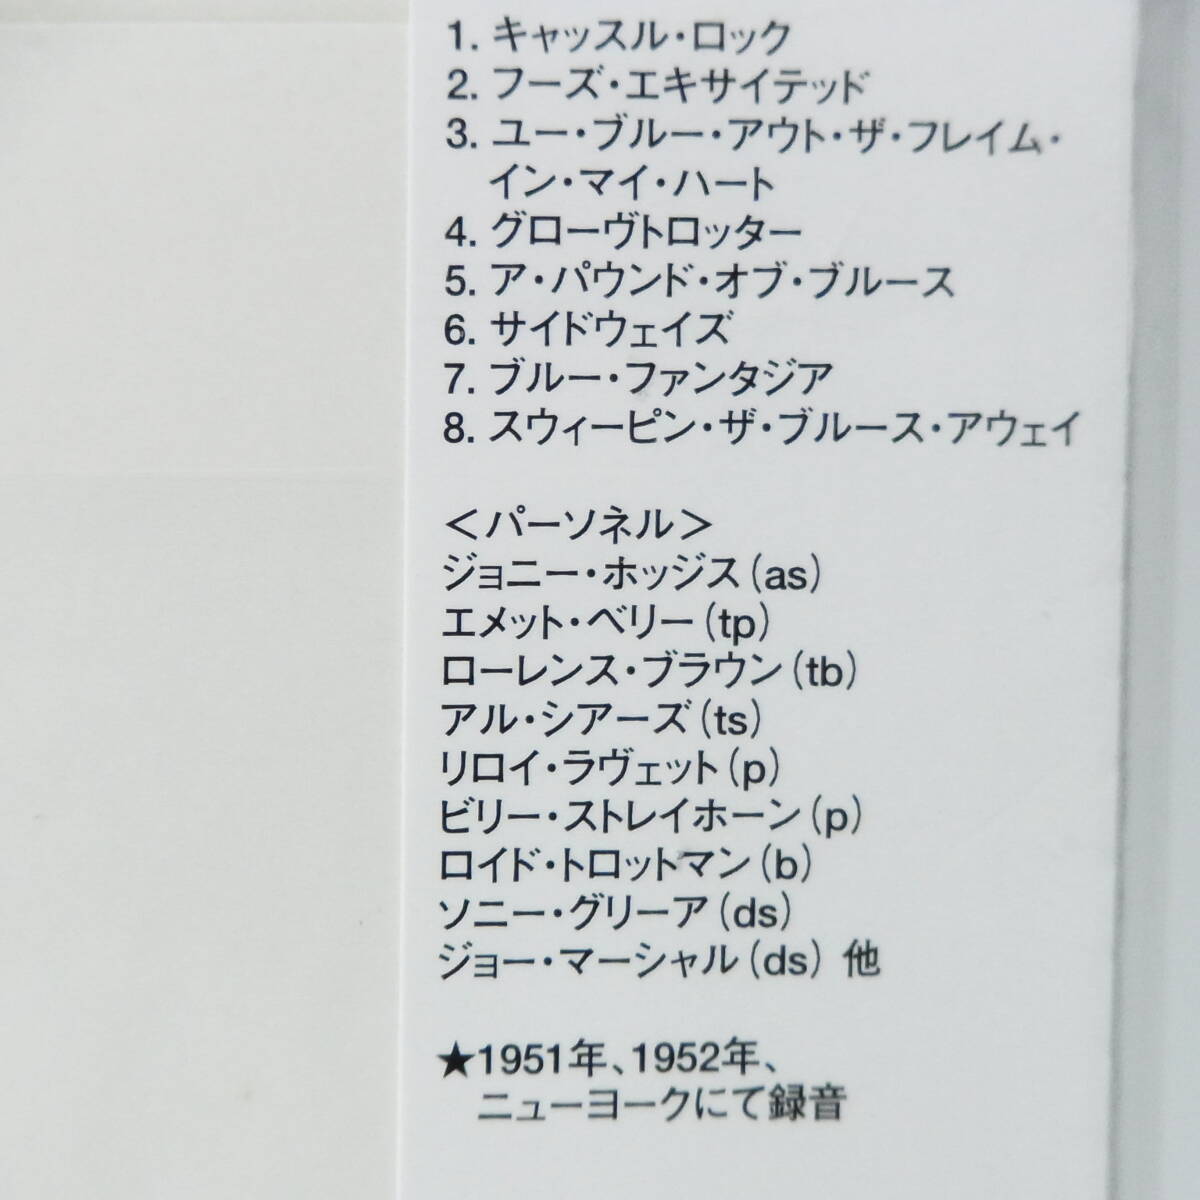 1. キャッスル・ロック
2. フーズ・エキサイテッド
3. ユー・ブルー・アウト・ザ・フレイム・
イン・マイ・ハート
4. グローヴトロッター
5. ア・パウンド・オブ・ブルース
6. サイドウェイズ
7. ブルー・ファンタジア
8. スウィーピン・ザ・ブルース・アウェイ
＜パーソネル＞
ジョニー・ホッジス(as)
エメット・ベリー(tp)
ローレンス・ブラウン(tb)
アル・シアーズ(ts)
リロイ・ラヴェット(p)
ビリー・ストレイホーン(p)
ロイド・トロットマン(b)
ソニー・グリーア(ds)
ジョー・マーシャル(ds) 他
★1951年、1952年、
ニューヨークにて録音